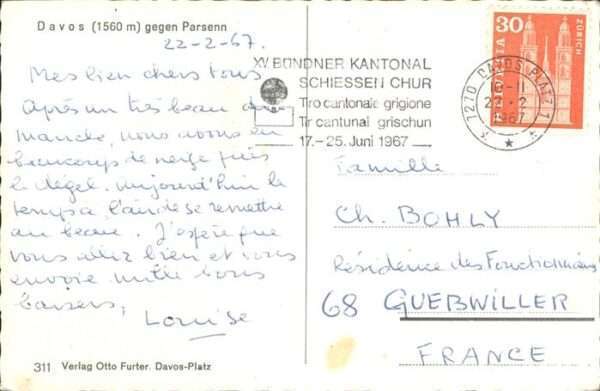 Davos (1560 m) gegen Parsenn
22-2-67.
Mes bien chers tous
Après un très beau di
manche, nous avons eu
beaucoup de neige puis
le dégel. Aujourd'hui le
temps a l'air de se remettre
au beau. J'espère que
vous allez bien et vous
envoie mille bons
baisers,
Louise
311 Verlag Otto Furter. Davos-Platz
XV BÜNDNER KANTONAL
SCHIESSEN CHUR
Tiro cantonale grigione
Tir cantunal grischun
17.-25. Juni 1967
7270 DAVOS PLATZ 1
1967
30
HELVETIA
ZÜRICH
Famille
Ch. BOHLY
Résidence des Fonctionnaires
68 GUEBWILLER
FRANCE